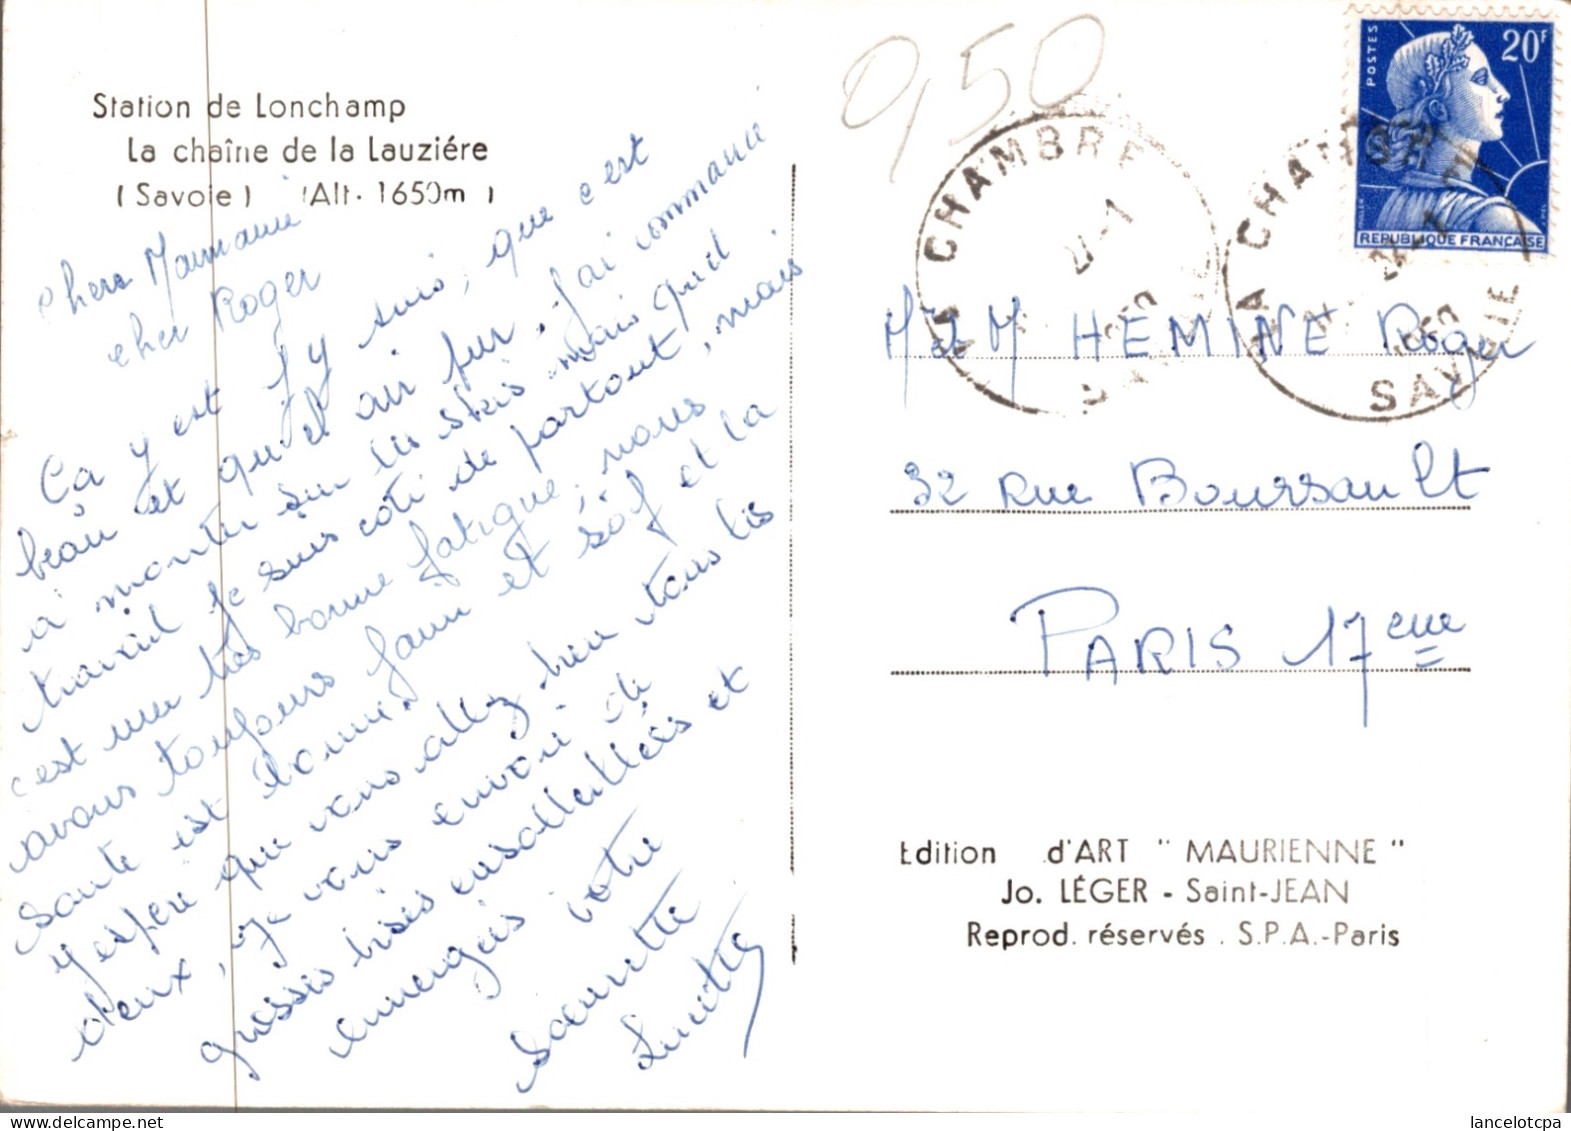 Station de Lonchamp
La chaîne de la Lauziére
(Savoie) (Alt. 1650m)
chere Mamanie
cher Roger
Ça y est j'y suis, que c'est
beau et qu'el air pur, j'ai commancé
a monter sur les skis mais quel
travail je suis coté de partout, mais
c'est une très bonne fatigue, nous
avons toujours faim et soif et la
santé est bonne.
J'espère que vous allez bien tous les
deux, je vous envoie de
grosses bises ensolleillées et
enneigés votre
soeurette
0,50
LA CHAMBRE
21-1
SAVOIE
LA CHAMBRE
SAVOIE
POSTES
20F
REPUBLIQUE FRANÇAISE
Mr et M HEMINE Roger
32 rue Boursault
PARIS 17ème
Edition d'ART " MAURIENNE "
Jo. LÉGER - Saint-JEAN
Reprod. réservés . S.P.A.-Paris
lancelotcpa